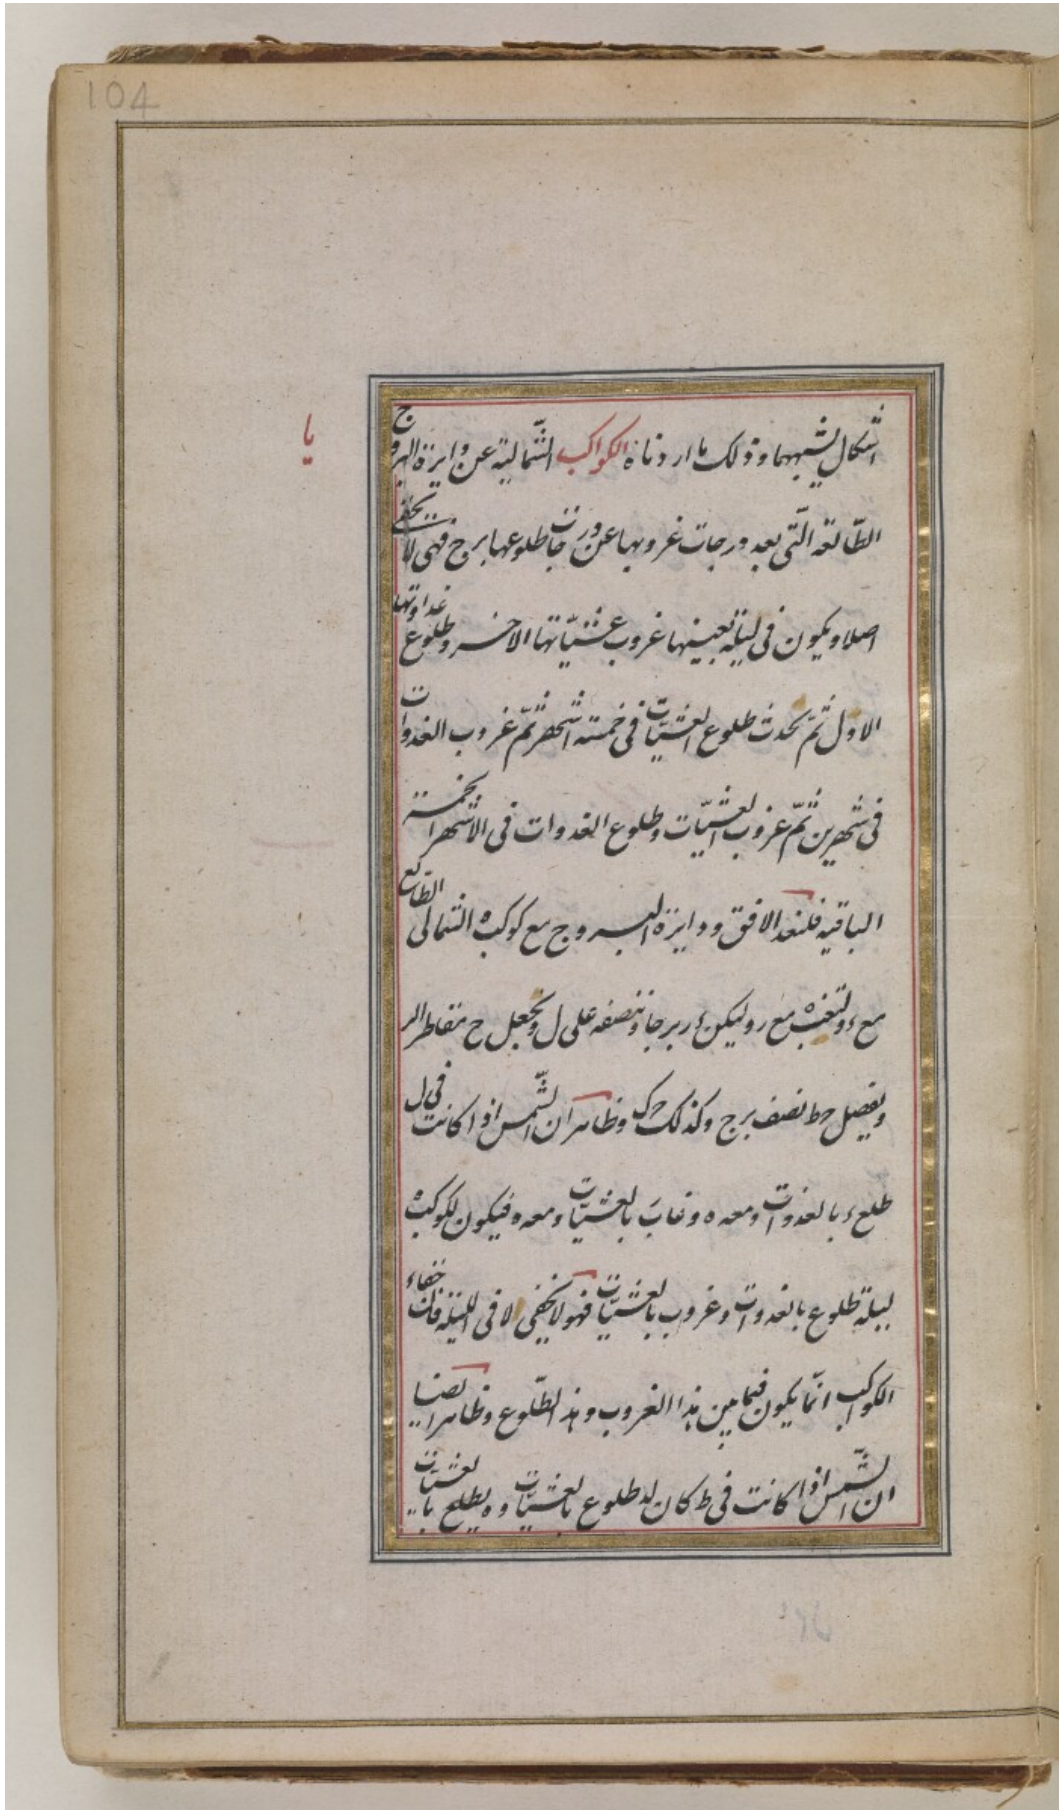 104
يا
اشكال يشبهها وذلك ما اردناه الكواكب الشّمالية عن دايرة البروج
الطّالعة الّتى بعد درجات غروبها عن درجات طلوعها برج فهى لا تخفى
اصلا ويكون فى ليلة بعينها غروب عشيّاتها الاخر وطلوع غداوتها
الاوّل ثمّ تحدث طلوع العشيّات فى خمسة اشهر ثمّ غروب الغدوات
فى شهرين ثمّ غروب العشيّات وطلوع الغدوات فى الاشهر الخمسة
الباقية فلنعد الافق ودايرة البروج مع كوكب ه الشمالى الطّالع
مع ء ولتغب ه مع ر وليكن ء ر برجا وننصفه على ل ونجعل ح مقاطر الر
ويفصل حط نصف برج وكذلك حک وظاهر ان الشّمس اذا كانت فى ل
طلع ء بالغدوات ومعه ه وغاب ر بالعشيّات ومعه ه فيكون لكوكب ه
ليلة طلوع بالغدوات وغروب بالعشيّات فهو لا يخفى لا فى اللّيلة فان خفاء
الكواكب انّما يكون فيما بين هذا الغروب وهذا الطّلوع وظاهر ايضا
ان الشّمس اذا كانت فى ط كان لد طلوع بالعشيّات وه يطلع بالعشيّات